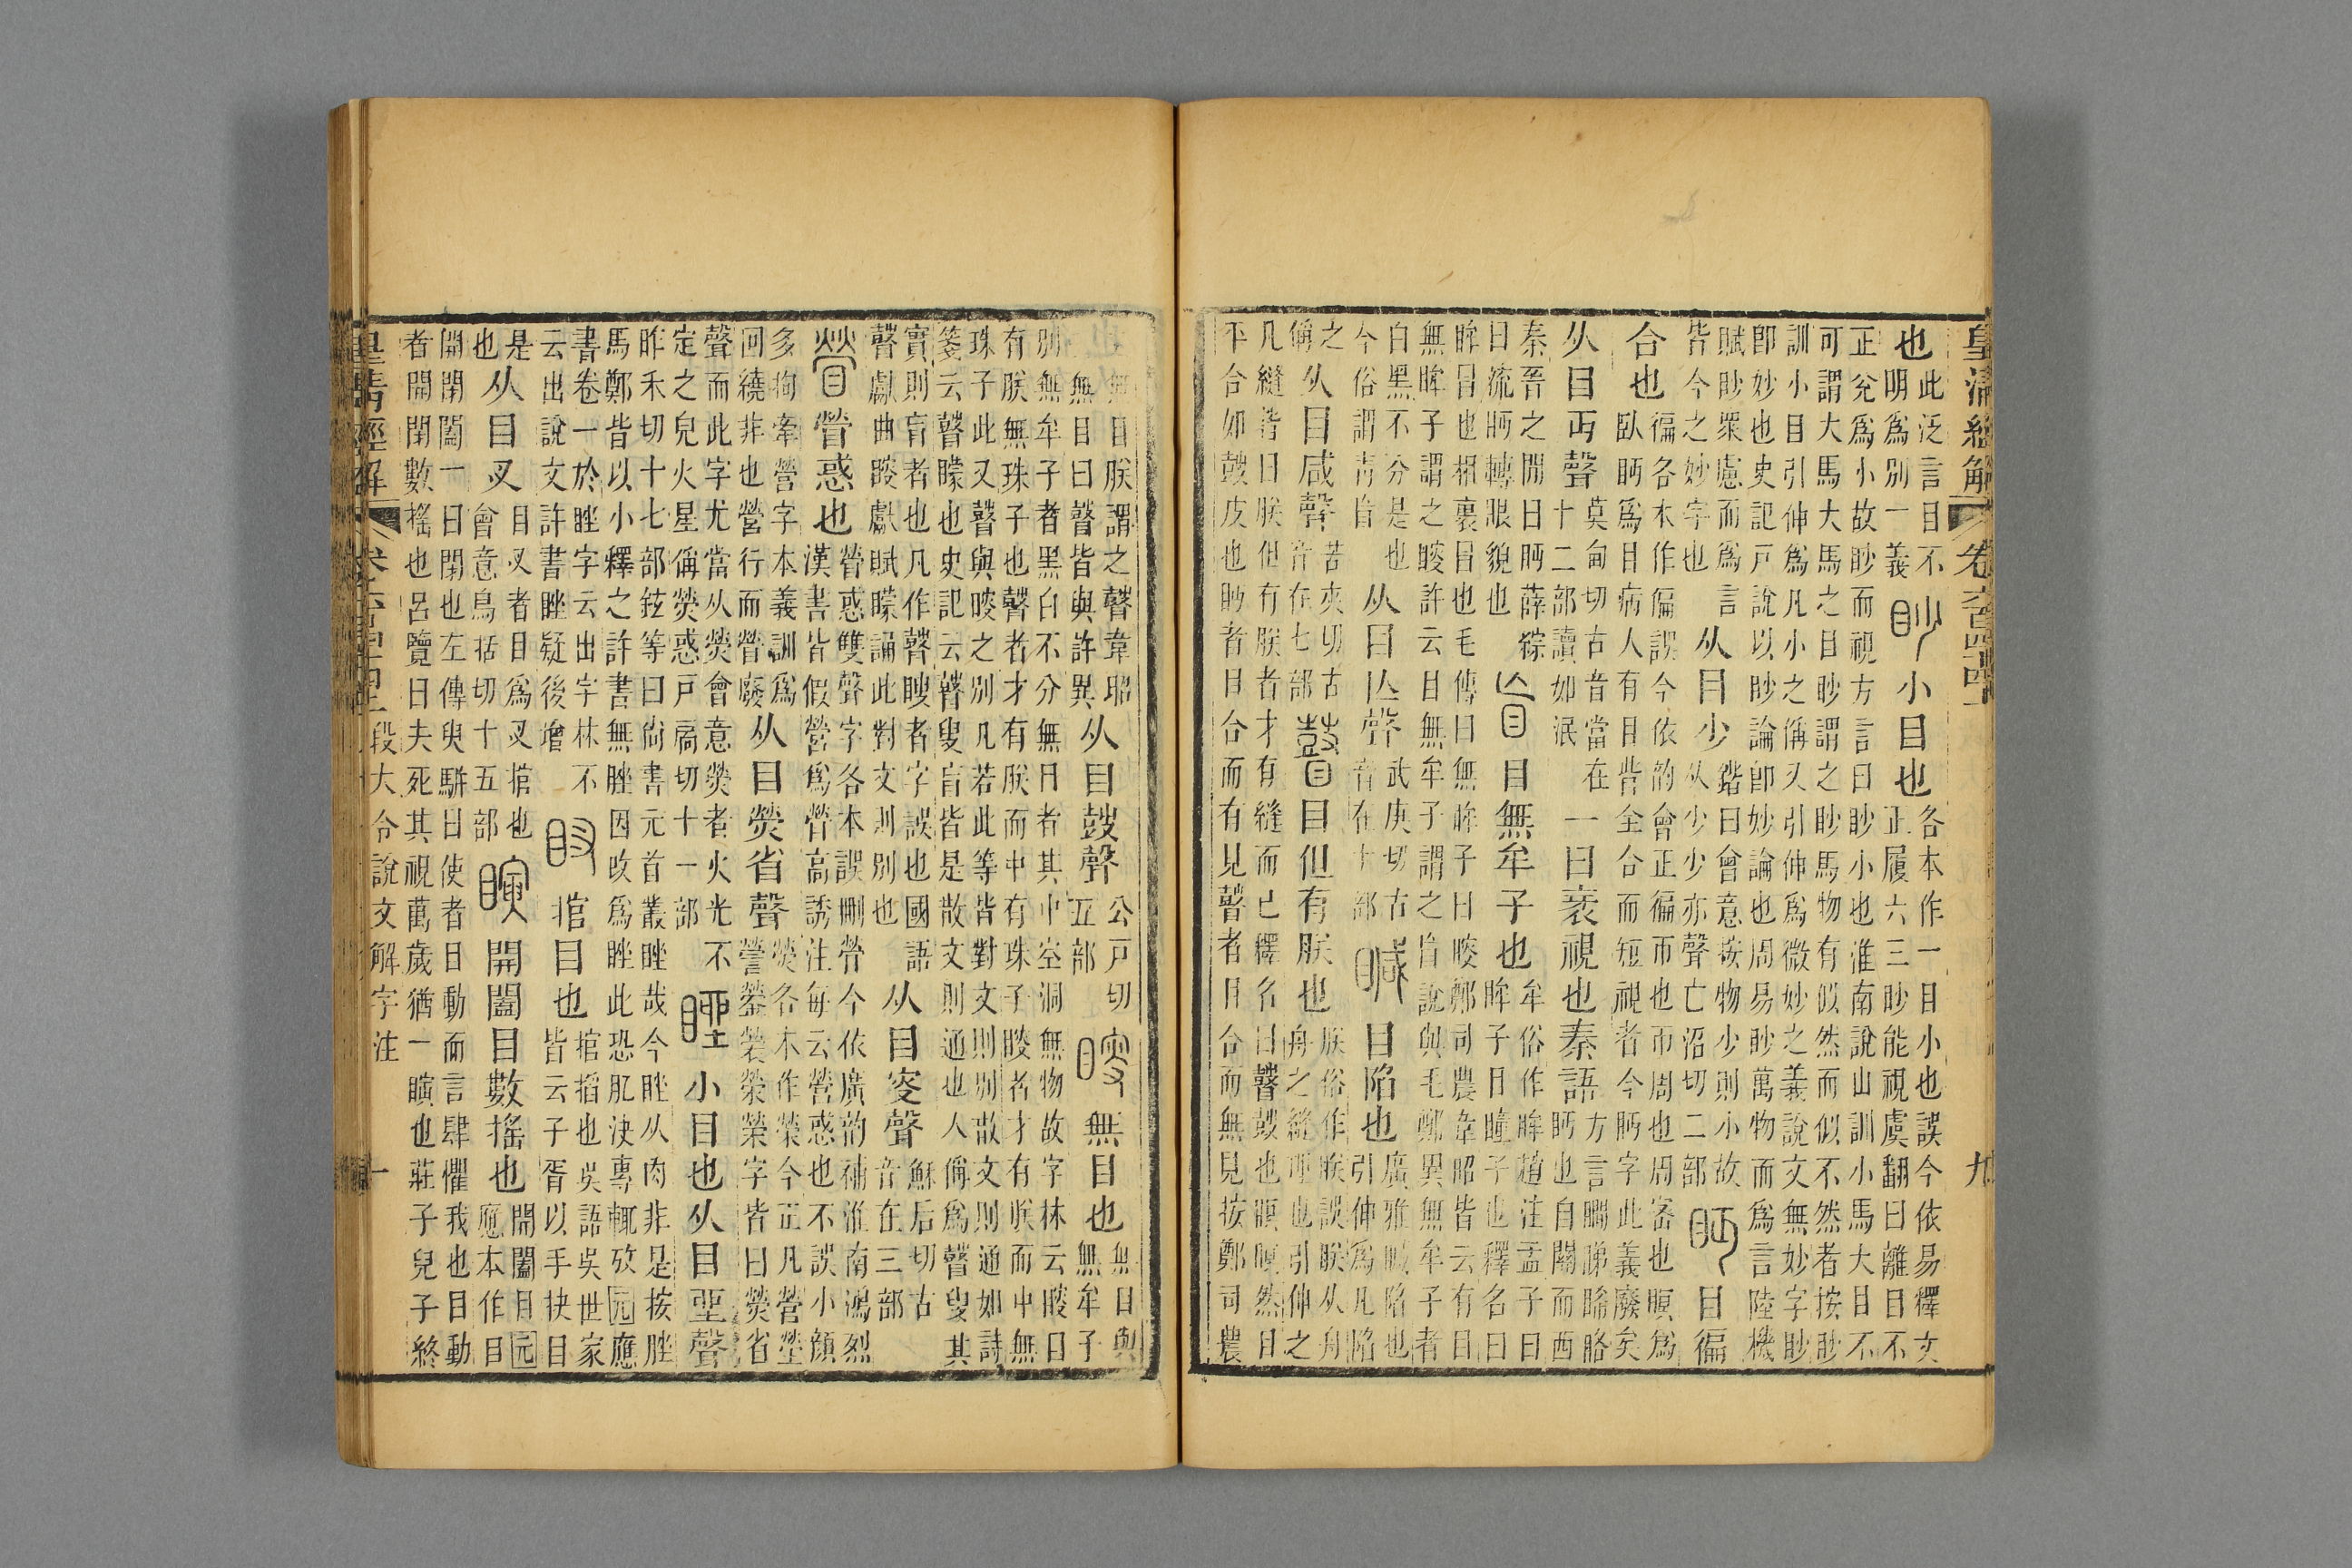 皇清經解 卷六百四十四 九
也此泛言目不明爲別一義眇小目也各本作一目小也誤今依易釋文正履六三眇能視虞翻曰離目不
正兌爲小故眇而視方言曰眇小也淮南說山訓小馬大目不可謂大馬大馬之目眇謂之眇馬物有似然而似不然者按眇
訓小目引伸爲凡小之偁又引伸爲微妙之義說文無妙字眇卽妙也史記戶說以眇論卽妙論也周易眇萬物而爲言陸機
賦眇衆慮而爲言皆今之妙字也从目少鍇曰會意按物少則小故从少少亦聲亡沼切二部眄目徧
合也徧各本作偏誤今依韵會正徧帀也帀周也周密也瞑爲臥眄爲目病人有目眥全合而短視者今眄字此義廢矣
从目丏聲莫甸切古音當在十二部讀如泯一曰衺視也秦語方言瞯睇睎䀩眄也自關而西
秦晉之閒曰眄薛綜曰流眄轉眼貌也盲目無牟子也牟俗作眸趙注孟子曰眸子目瞳子也釋名曰
眸冒也相裹冒也毛傳曰無眸子曰瞍鄭司農韋昭皆云有目無眸子謂之瞍許云目無牟子謂之盲說與毛鄭異無牟子者
白黑不分是也今俗謂靑盲从目亡聲武庚切古音在十部䁍目陷也廣雅䁍陷也引伸爲凡陷
之偁从目咸聲苦夾切古音在七部瞽目但有朕也朕俗作眹誤朕从舟舟之縫理也引伸之
凡縫皆曰朕但有朕者才有縫而已釋名曰瞽鼓也瞑瞑然目平合如鼓皮也眄者目合而有見瞽者目合而無見按鄭司農
云無目朕謂之瞽韋昭云無目曰瞽皆與許異从目鼓聲公戶切五部瞍無目也無目與無牟子
別無牟子者黑白不分無目者其中空洞無物故字林云瞍目有朕無珠子也瞽者才有朕而中有珠子瞍者才有朕而中無
珠子此又瞽與瞍之別凡若此等皆對文則別散文則通如詩箋云瞽矇也史記云瞽叟盲皆是散文則通也人偁爲瞽叟其
實則盲者也凡作瞽瞍者字誤也國語瞽獻曲瞍獻賦矇誦此對文則別也从目叜聲蘇后切古音在三部
䁝營惑也營惑雙聲字各本誤刪營今依廣韵補淮南鴻烈漢書皆假營爲䁝高誘注每云營惑也不誤小顔
多拘牽營字本義訓爲回繞非也營行而䁝廢从目熒省聲熒各本作榮今正凡營塋字皆曰熒省
聲而此字尤當从熒會意熒者火光不定之皃火星偁熒惑戶扃切十一部睉小目也从目坐聲
昨禾切十七部鉉等曰尙書元首叢睉哉今睉从肉非是按脞馬鄭皆以小釋之許書無脞因改爲睉此恐肊決專輒攷元應
書卷一於睉字云出字林不云出說文許書睉疑後增䀜捾目也捾搯也吳語吳世家皆云子胥以手抉目
是也从目叉目叉者目爲叉捾也會意烏括切十五部瞚開闔目數搖也開闔目元應本作目
開閉闔一曰閉也左傳臾駢曰使者目動而言肆懼我也目動者開閉數搖也呂覽曰夫死其視萬歲猶一瞚也莊子兒子終
皇清經解 卷六百四十四 段大令說文解字注 十